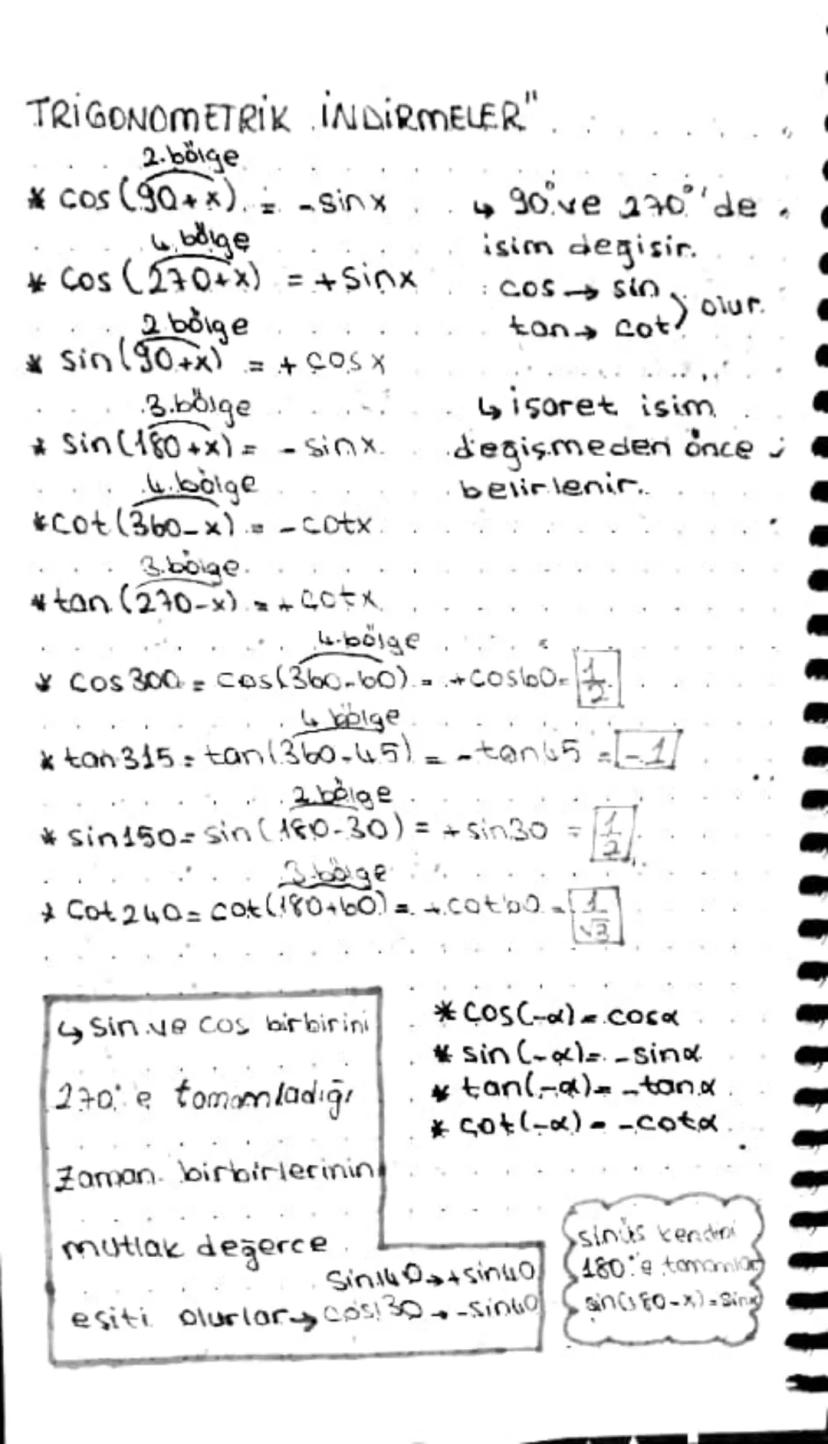 TRİGONOMETRİK İNDİRMELER"
2.bölge
* cos(90+x) = -sinx
4.bölge
* cos(270+x) = +sinx
2 bölge
* sin(90+x) = +cosx
3.bölge
* sin(180+x) = -sinx
4.bölge
* cot(360-x) = -cotx
3.bölge
* tan(270-x) = +cotx
↳ 90° ve 270°'de
isim degisir.
cos → sin
tan → cot } olur.
↳ işaret isim
değişmeden önce
belirlenir.
4.bölge
* cos300 = cos(360-60) = +cos60 = 1/2
4 bölge
* tan315 = tan(360-45) = -tan45 = -1
2.bölge
* sin150 = sin(180-30) = +sin30 = 1/2
3.bölge
* cot240 = cot(180+60) = +cot60 = 1/√3
↳ sin ve cos birbirini
270°'e tamamladığı
zaman birbirlerinin
mutlak değerce
eşiti olurlar →
sin140 → +sin40
cos130 → -sin40
* cos(-α) = cosα
* sin(-α) = -sinα
* tan(-α) = -tanα
* cot(-α) = -cotα
sinüs kendini
180°'e tamamlar
sin(180-x) = sinx